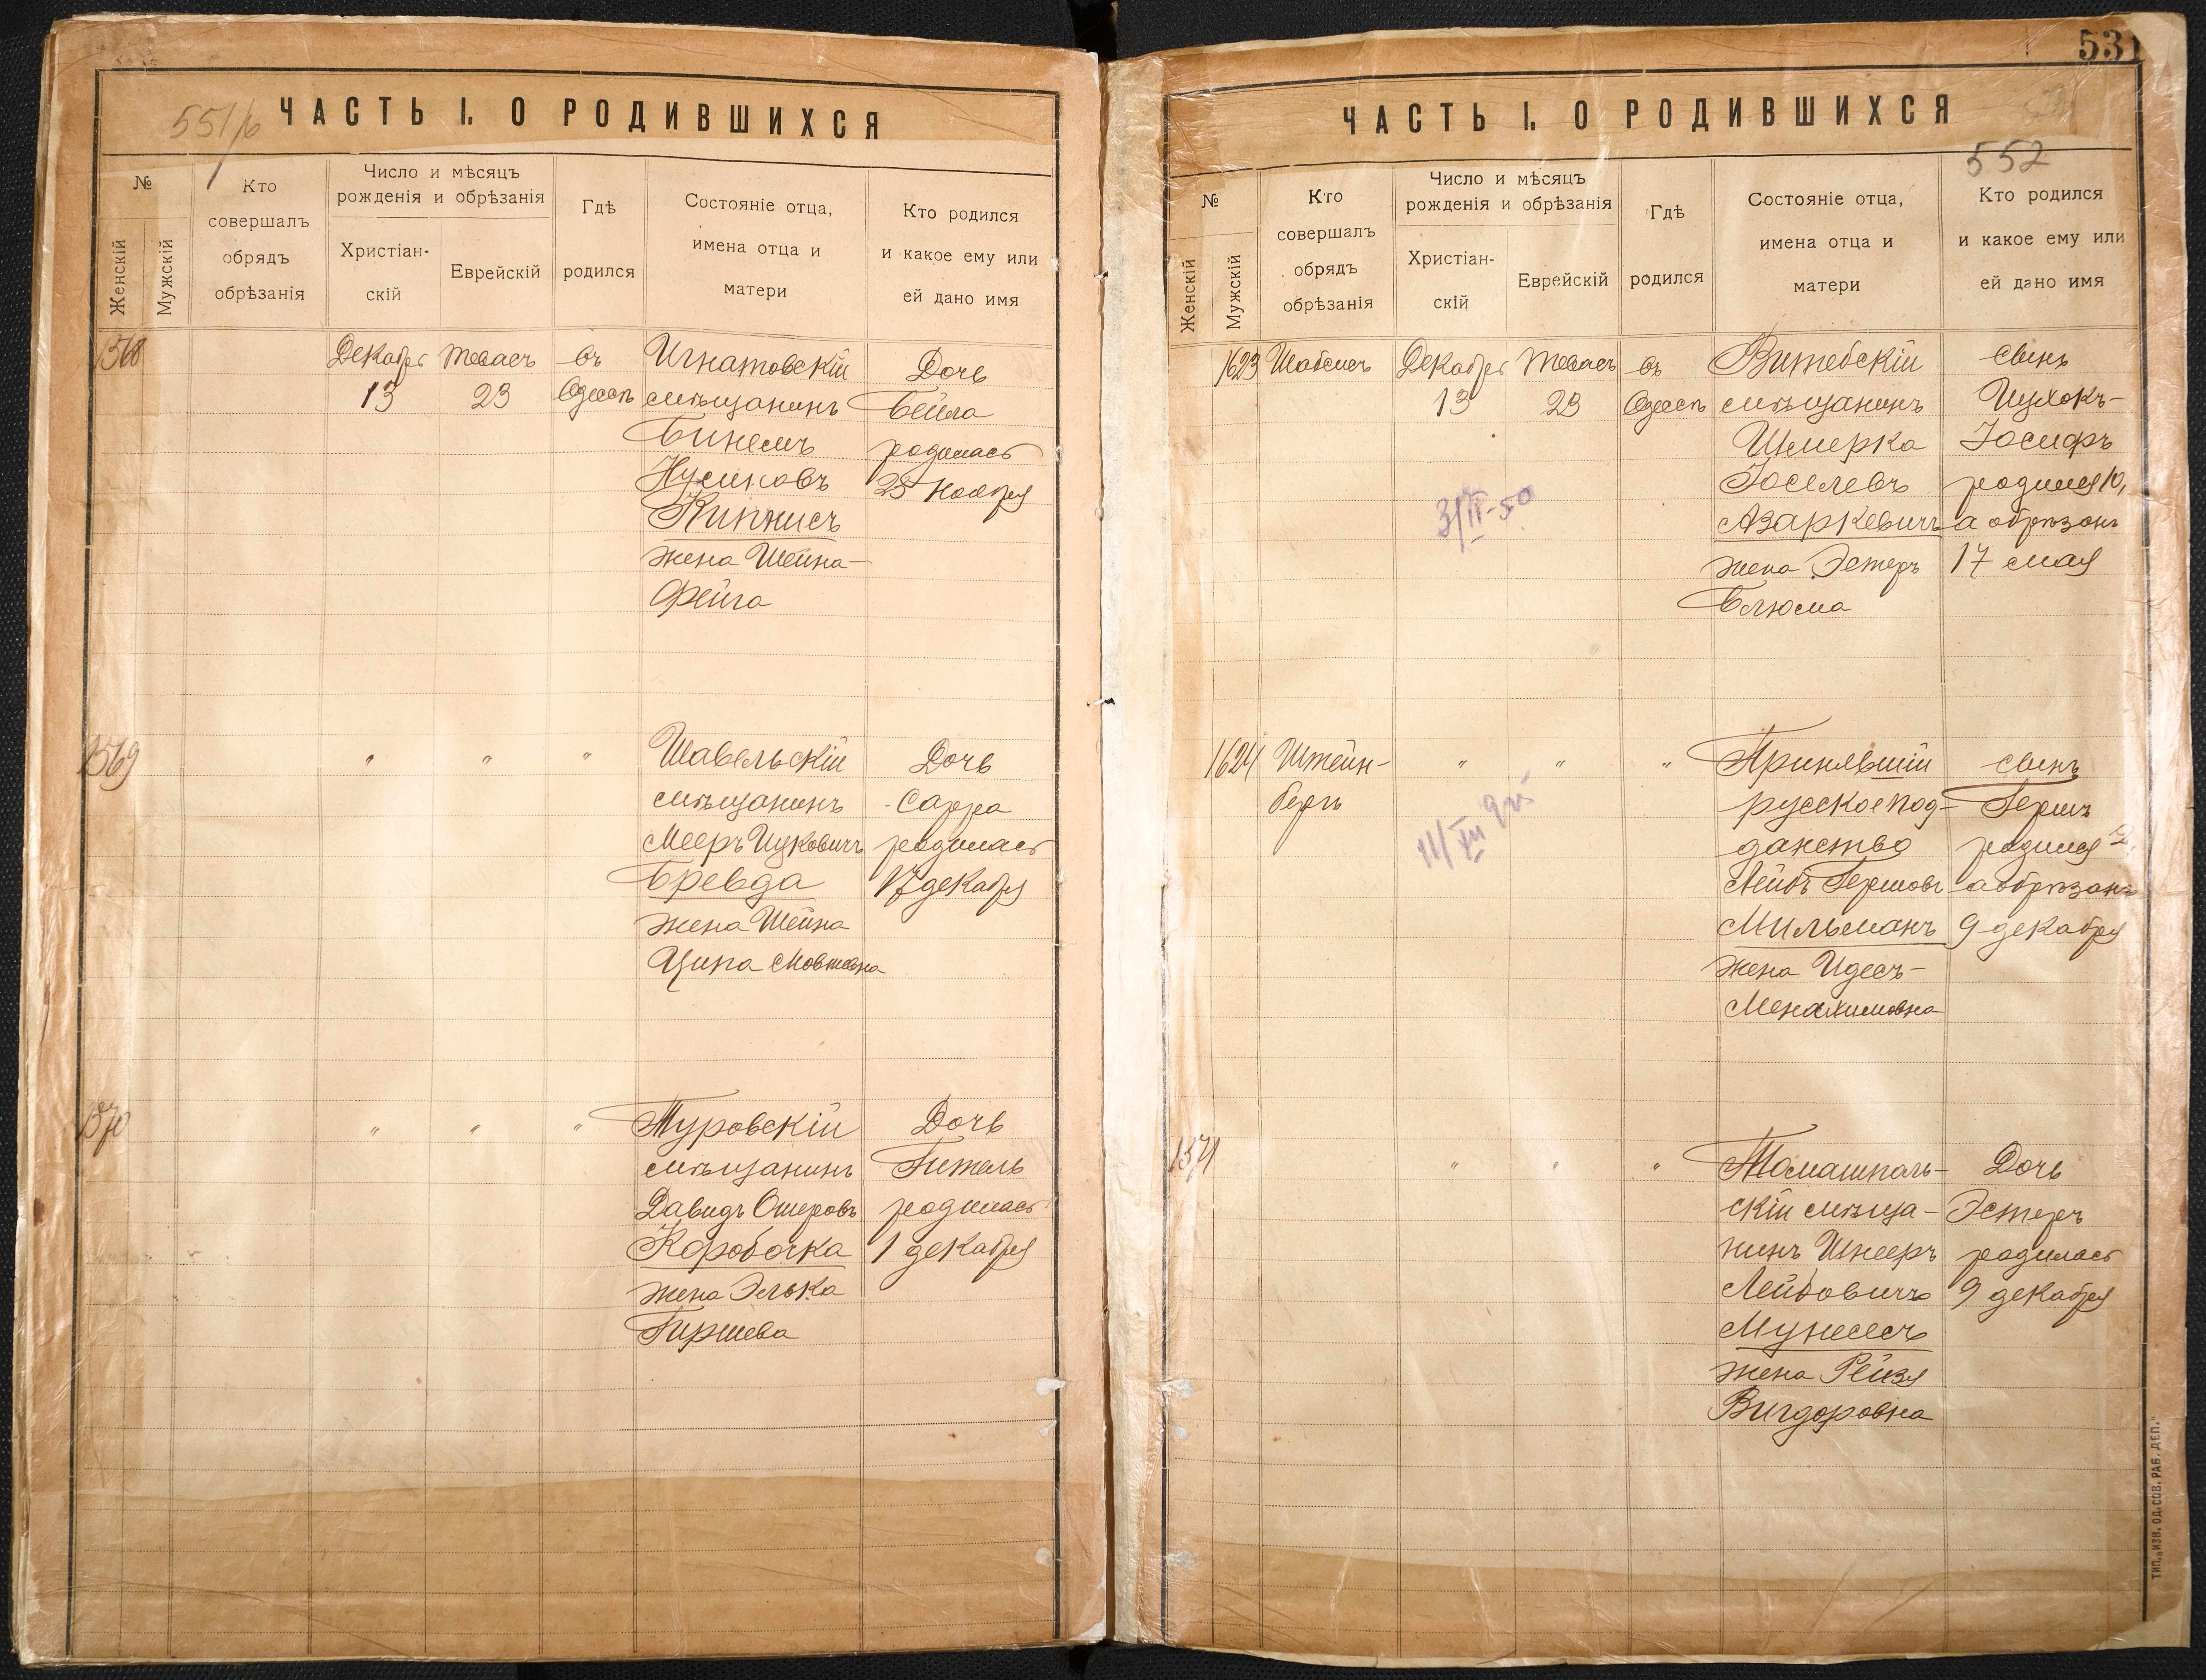 551/б
ЧАСТЬ I. О РОДИВШИХСЯ
№
Женскій
Мужскій
Кто
совершалъ
обрядъ
обрѣзанія
Число и мѣсяцъ
рожденія и обрѣзанія
Христіан-
скій
Еврейскій
Гдѣ
родился
Состояніе отца,
имена отца и
матери
Кто родился
и какое ему или
ей дано имя
1568
Декабрь
13
Тевасъ
23
въ
Одессѣ
Игнатовскій
мѣщанинъ
Бинемъ
Нусиновъ
Кипнисъ
жена Шейна-
Фейга
Дочь
Бейла
родилась
25 ноября
1569
" " "
Шавельскій
мѣщанинъ
Мееръ Ицковичъ
Бревда
жена Шейна
Ципа Мовшевна
Дочь
Сарра
родилась
17 декабря
1570
" " "
Туровскій
мѣщанинъ
Давидъ Ошеровъ
Коробочка
жена Элька
Гиршева
Дочь
Гитель
родилась
1 декабря
531
ЧАСТЬ I. О РОДИВШИХСЯ
552
№
Женскій
Мужскій
Кто
совершалъ
обрядъ
обрѣзанія
Число и мѣсяцъ
рожденія и обрѣзанія
Христіан-
скій
Еврейскій
Гдѣ
родился
Состояніе отца,
имена отца и
матери
Кто родился
и какое ему или
ей дано имя
1623
Шабсисъ
Декабрь
13
Тевасъ
23
въ
Одессѣ
3/II-50
Витебскій
мѣщанинъ
Шмерка
Іоселевъ
Азаркевичъ
жена Эстеръ
Блюма
сынъ
Ицхокъ-
Іосифъ
родился 10,
а обрѣзанъ
17 мая
1624
Штейн-
бергъ
" " "
Принявшій
русское под-
данство
Лейбъ Гершовъ
Мильманъ
жена Идесъ-
Менахимовна
сынъ
Гершъ
родился 2,
а обрѣзанъ
9 декабря
1571
" " "
Томашполь-
скій мѣща-
нинъ Шнееръ
Лейбовичъ
Мунесъ
жена Рейзя
Вигдоровна
Дочь
Эстеръ
родилась
9 декабря
ТИП. „ИЗВ. ОД. СОВ. РАБ. ДЕП."